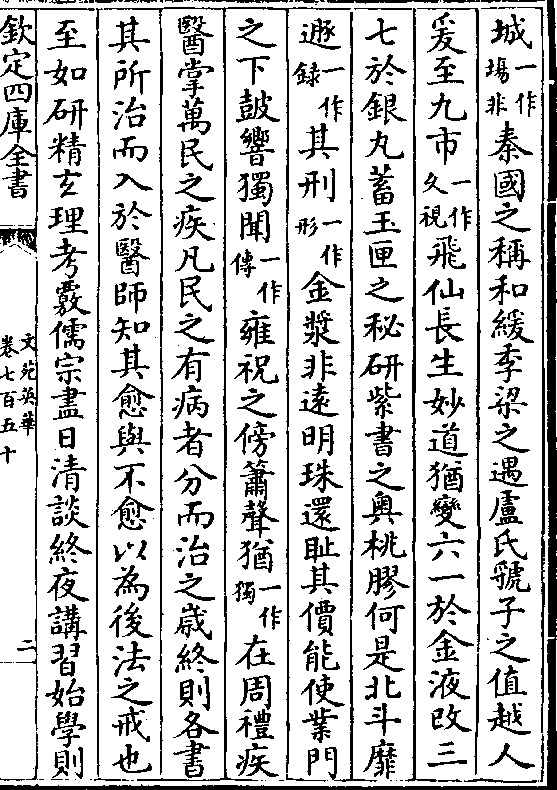 城一作場非秦國之稱和緩季梁之遇盧氏虢子之值越人
爰至九市一作久視飛仙長生妙道猶變六一於金液改三
七於銀丸蓄玉匣之秘研紫書之奥桃膠何是北斗靡
遯一作錄其刑一作形金漿非遠明珠還耻其價能使業門
之下鼓響獨聞一作傳雍祝之傍簫聲猶一作獨在周禮疾
醫掌萬民之疾凡民之有病者分而治之歲終則各書
其所治而入於醫師知其愈與不愈以為後法之戒也
至如研精玄理考覈儒宗盡日清談終夜講習始學則
欽定四庫全書
文苑英華
卷七百五十
二